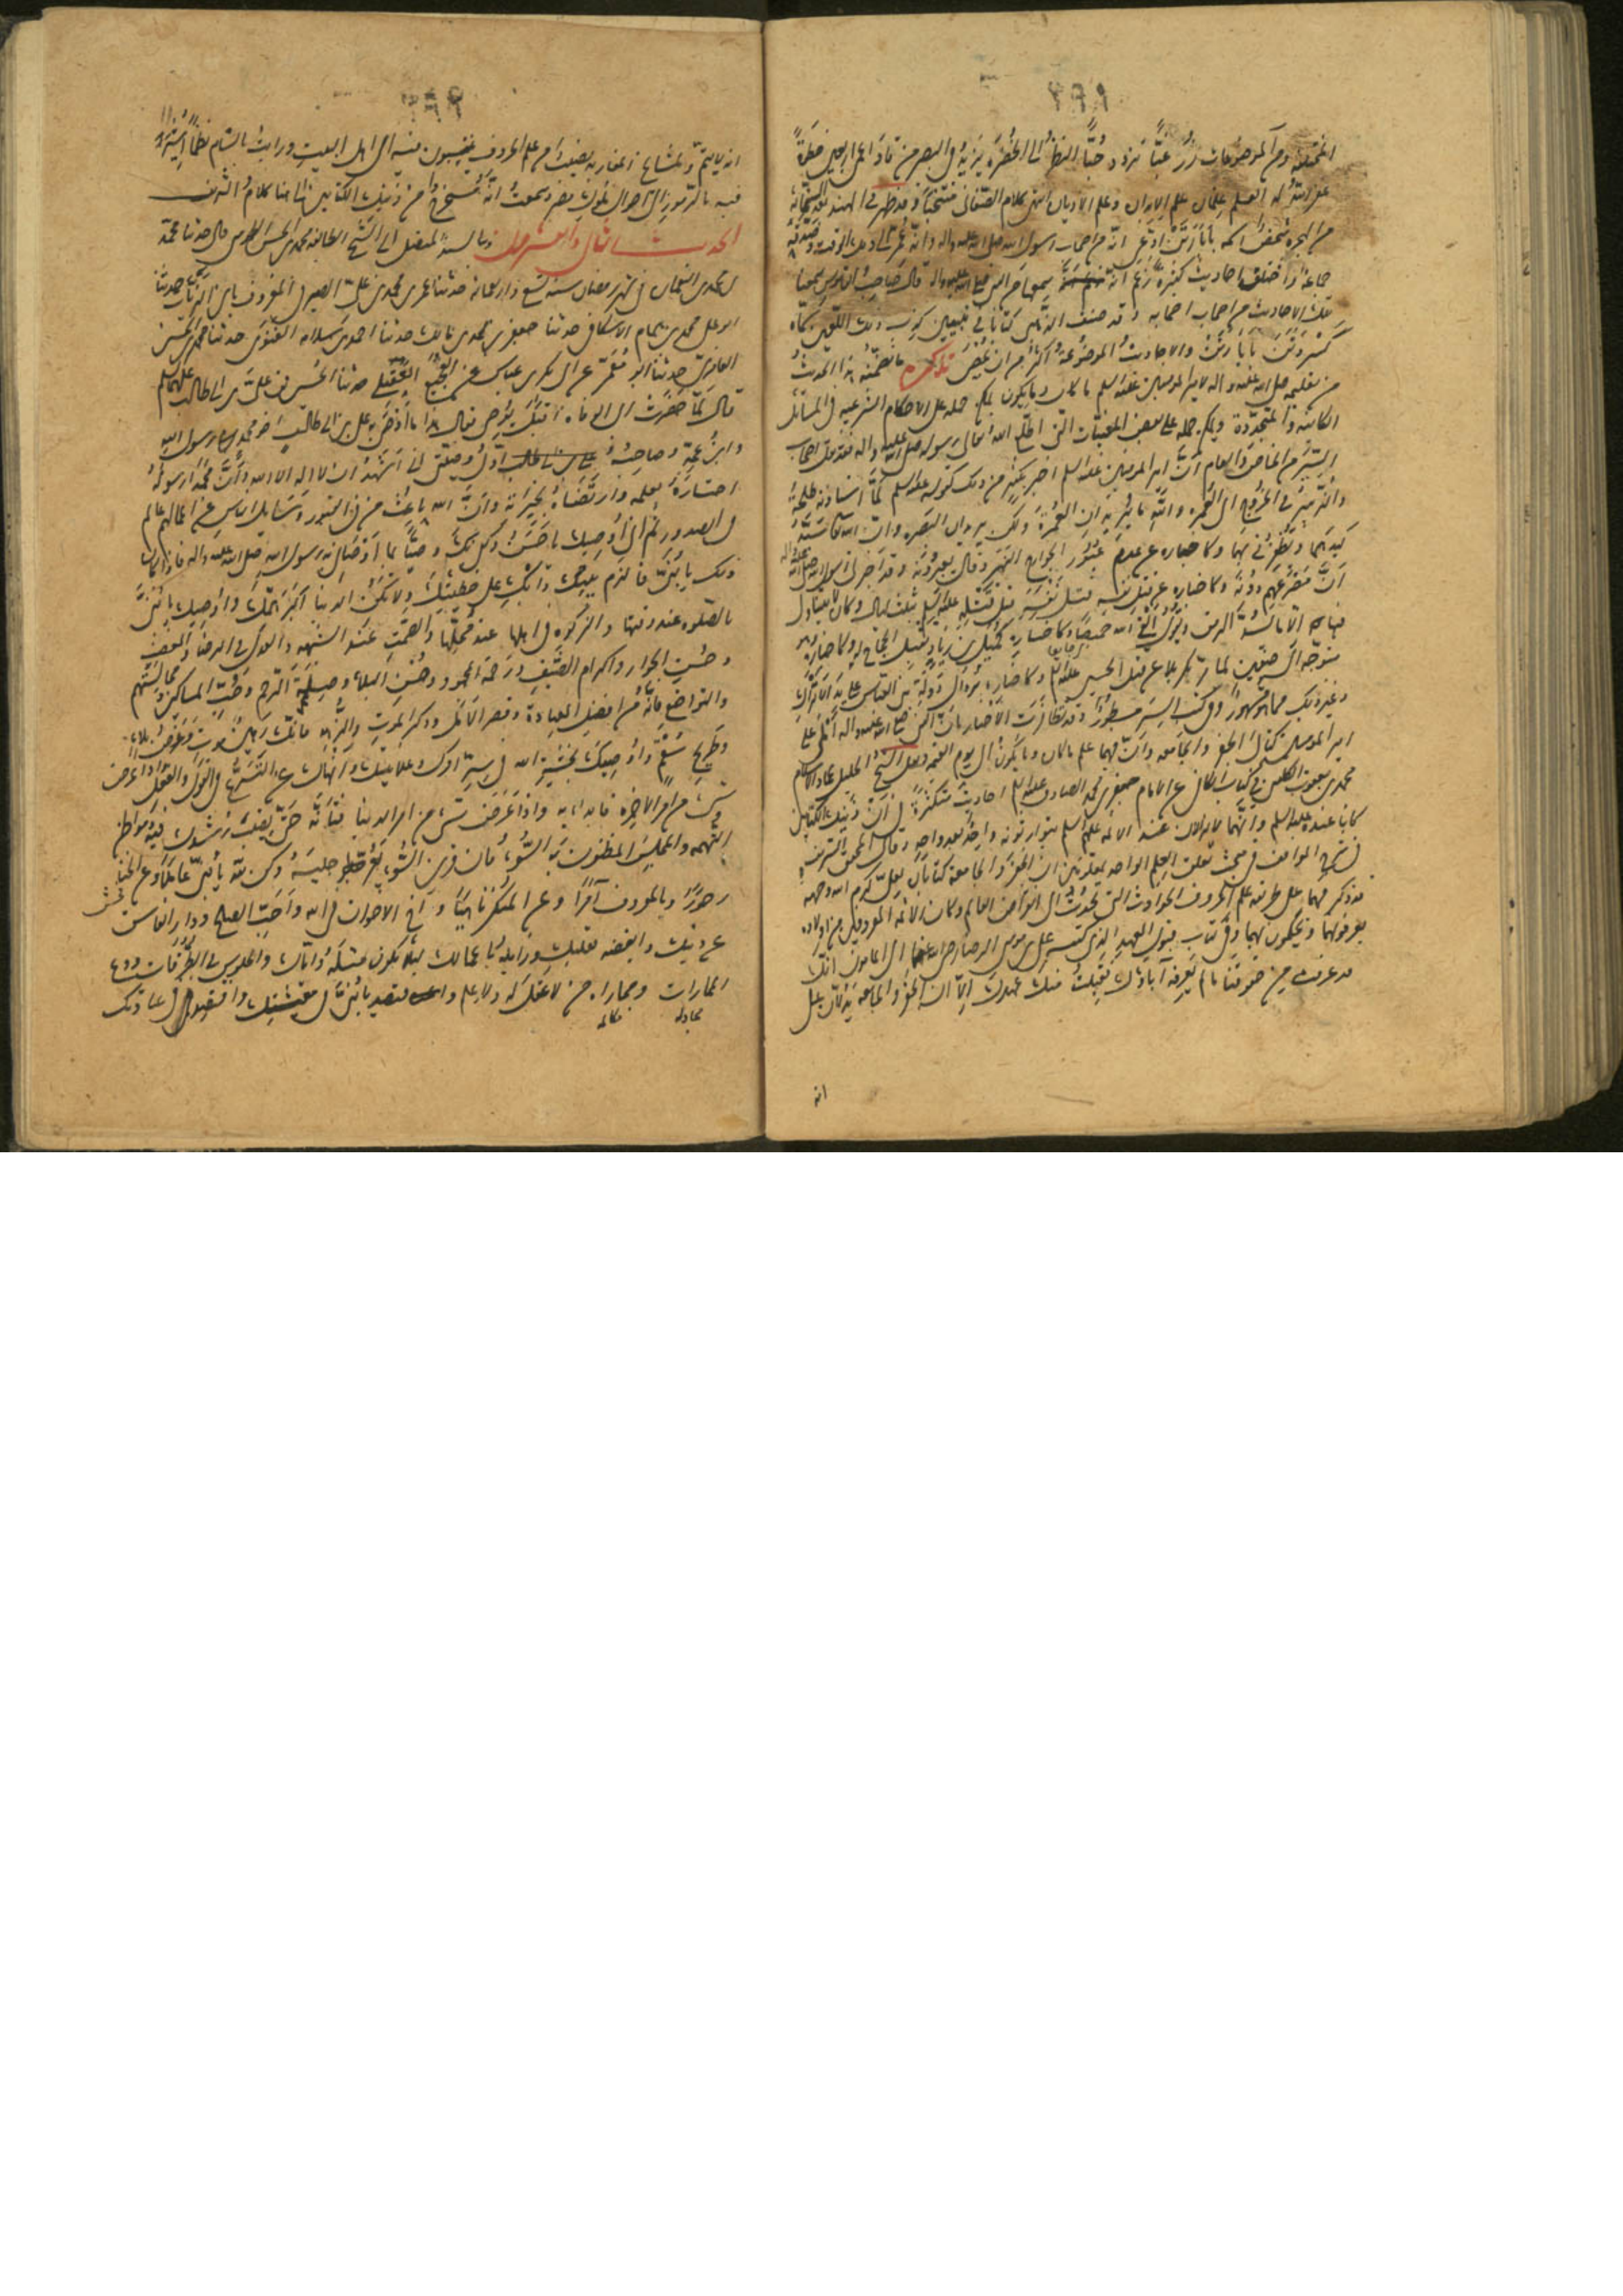 المختلقه ومن الموضوعات زر غبا تزدد حبا النظر الى الخضرة يزيد فى البصر من قاد اعمى اربعين خطوة
غفر الله له العلم علمان علم الابدان وعلم الاديان انتهى كلام الصغانى منتخبا وقد ظهر فى الهند بعد الستمائة
من الهجرة شخص اسمه بابا رتن ادعى انه من اصحاب رسول الله صلى الله عليه واله وانه عمر الى ذلك الوقت وصدقه
جماعة واختلق احاديث كثيرة زعم انه سمعها من النبى صلى الله عليه واله قال صاحب القاموس سمعنا
تلك الاحاديث من اصحاب اصحابه وقد صنف الذهبى كتابا فى تبيين كذب ذلك اللعين سماه
كسر وثن بابا رتن والاحاديث الموضوعة اكثر من ان تحصى تذكرة ما تضمنه هذا الحديث
من تعليمه صلى الله عليه واله لامير المومنين عليه السلم ما كان وما يكون يمكن حمله على الاحكام الشرعيه فى المسائل
الكائنة والمتجددة ويمكن حمله على بعض المغيبات التى اطلع الله تعالى رسوله صلى الله عليه واله فقد نقل اصحاب
السير من الخاص والعام ان امير المومنين عليه السلم اخبر بكثير من ذلك كقوله عليه السلم لما استاذنه طلحة
والزبير فى الخروج الى العمرة والله ما يريدان العمرة ولكن يريدان البصره وان الله تعالى سيرد
كيدهما ويظفرنى بهما وكاخباره عن عدم عبور الخوارج النهر وقال بعد وقد اخبرنى رسول الله صلى الله عليه واله
ان مصرعهم دونه وكاخباره عن قتل نفسه قبل قتله عليه السلم بثلث ليال وكان لا يتناول
فيها الا ما يسد الرمق ويقول القى الله خميصا وكاخباره كميل بن زياد بقتل الحجاج له وكاخباره
متوجه الى صفين لما مر بكربلا عن قتل الحسين عليه السلم وكاخباره بزوال دولة بنى العباس على يد الاتراك
وغير ذلك مما هو مشهور وفى كتب السير مسطور وقد تظافرت الاخبار بان النبى صلى الله عليه واله املى على
امير المومنين كتابى الجفر والجامعه وان فيهما علم ما كان وما يكون الى يوم القيمه ونقل الشيخ الجليل عماد الاسلام
محمد بن يعقوب الكلينى فى كتاب الكافى عن الامام جعفر بن محمد الصادق عليه السلم احاديث متكثرة فى ان ذينك الكتابين
كانا عنده عليه السلم وانهما لا يزالان عند الائمة عليهم السلم يتوارثونه واحد بعد واحد وقال المحقق الشريف
فى شرح المواقف فى مبحث تعلق العلم الواحد بمعلومين ان الجفر والجامعة كتابان لعلى كرم الله وجهه
قد ذكر فيهما على طريقة علم الحروف الحوادث التى تحدث الى انقراض العالم وكان الائمة المعروفون من اولاده
يعرفونهما ويحكمون بهما وفى كتاب قبول العهد الذى كتبه على بن موسى الرضا رضى الله عنهما الى المامون انك
قد عرفت من حقوقنا ما لم يعرفه آباؤك فقبلت منك عهدك الا ان الجفر والجامعة يدلان على
انه
انه لا يتم ولمشايخ المغاربه نصيب من علم الحروف ينتسبون فيه الى اهل البيت ورايت بالشام نظما اشير
فيه بالرموز الى احوال ملوك مصر وسمعت انه مستخرج من ذينك الكتابين الى هنا كلام الشريف
الحديث الثانى والعشرون وبالسند المتصل الى الشيخ الطائفه محمد بن الحسن الطوسى قال حدثنا محمد
بن محمد بن النعمان فى شهر رمضان سنه تسع واربعمائة حدثنا عمر بن محمد بن على الصيرفى المعروف بابن الزيات حدثنا
ابو على محمد بن همام الاسكافى حدثنا جعفر بن محمد بن مالك حدثنا احمد بن سلامه الغنوى حدثنا محمد بن الحسن
العامرى حدثنا ابو معمر عن ابى بكر بن عياش عن الفجيع العقيلى حدثنا الحسن بن على بن ابى طالب عليهما السلم
قال لما حضرت ابى الوفاه اقبل يوصى فقال هذا ما اوصى به على بن ابى طالب اخو محمد رسول الله
وابن عمه وصاحبه اول وصيتى انى اشهد ان لا اله الا الله وان محمدا رسوله
اختاره بعلمه وارتضاه لخيرته وان الله باعث من فى القبور وسائل الناس عن اعمالهم عالم
ما فى الصدور ثم انى اوصيك يا حسن وكفى بك وصيا بما اوصانى به رسول الله صلى الله عليه واله فاذا كان
ذلك يا بنى فالزم بيتك وابك على خطيئتك ولا تكن الدنيا اكبر همك واوصيك يا بنى
بالصلوه عند وقتها والزكوه فى اهلها عند محلها والصمت عند الشبهه والعدل فى الرضا والغضب
وحسن الجوار واكرام الضيف ورحمة المجهود واصحاب البلاء وصلة الرحم وحب المساكين ومجالستهم
والتواضع فانه من افضل العبادة وقصر الامل وذكر الموت والزهد فانك رهين موت وغرض بلاء
وطريح سقم واوصيك بخشية الله فى سر امرك وعلانيتك وانهاك عن التسرع فى القول والفعل واذا عرض
شئ من امر الاخرة فابدا به واذا عرض شئ من امر الدنيا فتانه حتى تصيب رشدك فيه ومواطن
التهمه والمجلس المظنون به السوء فان قرين السوء يغر جليسه وكن لله يا بنى عاملا وعن الخنا
زجورا وبالمعروف آمرا وعن المنكر ناهيا وآخ الاخوان فى الله واحب الصالح ودار الفاسق
عن دينك وابغضه بقلبك وزايله باعمالك لئلا تكون مثله واياك والجلوس فى الطرقات ودع
الممارات ومجاراة من لا عقل له ولا علم واقتصد يا بنى فى معيشتك واقتصد فى عبادتك
مجادله مكالمه